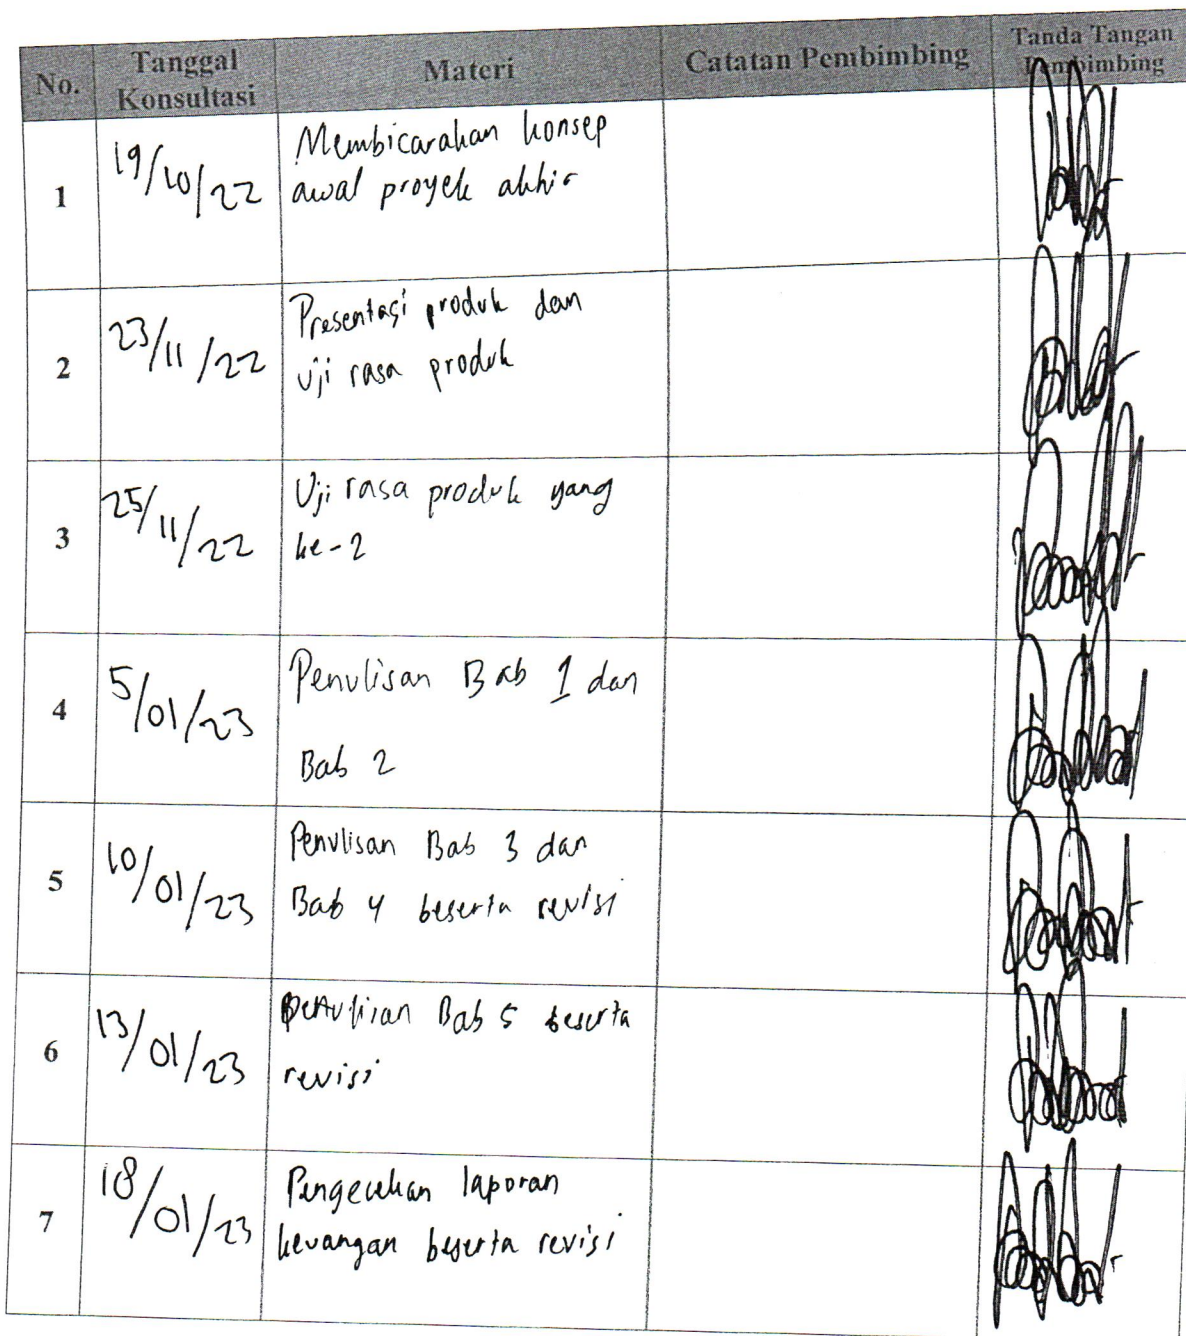 No.
Tanggal
Konsultasi
Materi
Catatan Pembimbing
Tanda Tangan
Pembimbing
1
19/10/22
Membicarakan konsep
awal proyek akhir
2
23/11/22
Presentasi produk dan
uji rasa produk
3
25/11/22
Uji rasa produk yang
ke-2
4
5/01/23
Penulisan Bab 1 dan
Bab 2
5
10/01/23
Penulisan Bab 3 dan
Bab 4 beserta revisi
6
13/01/23
Penulisan Bab 5 beserta
revisi
7
18/01/23
Pengecekan laporan
keuangan beserta revisi